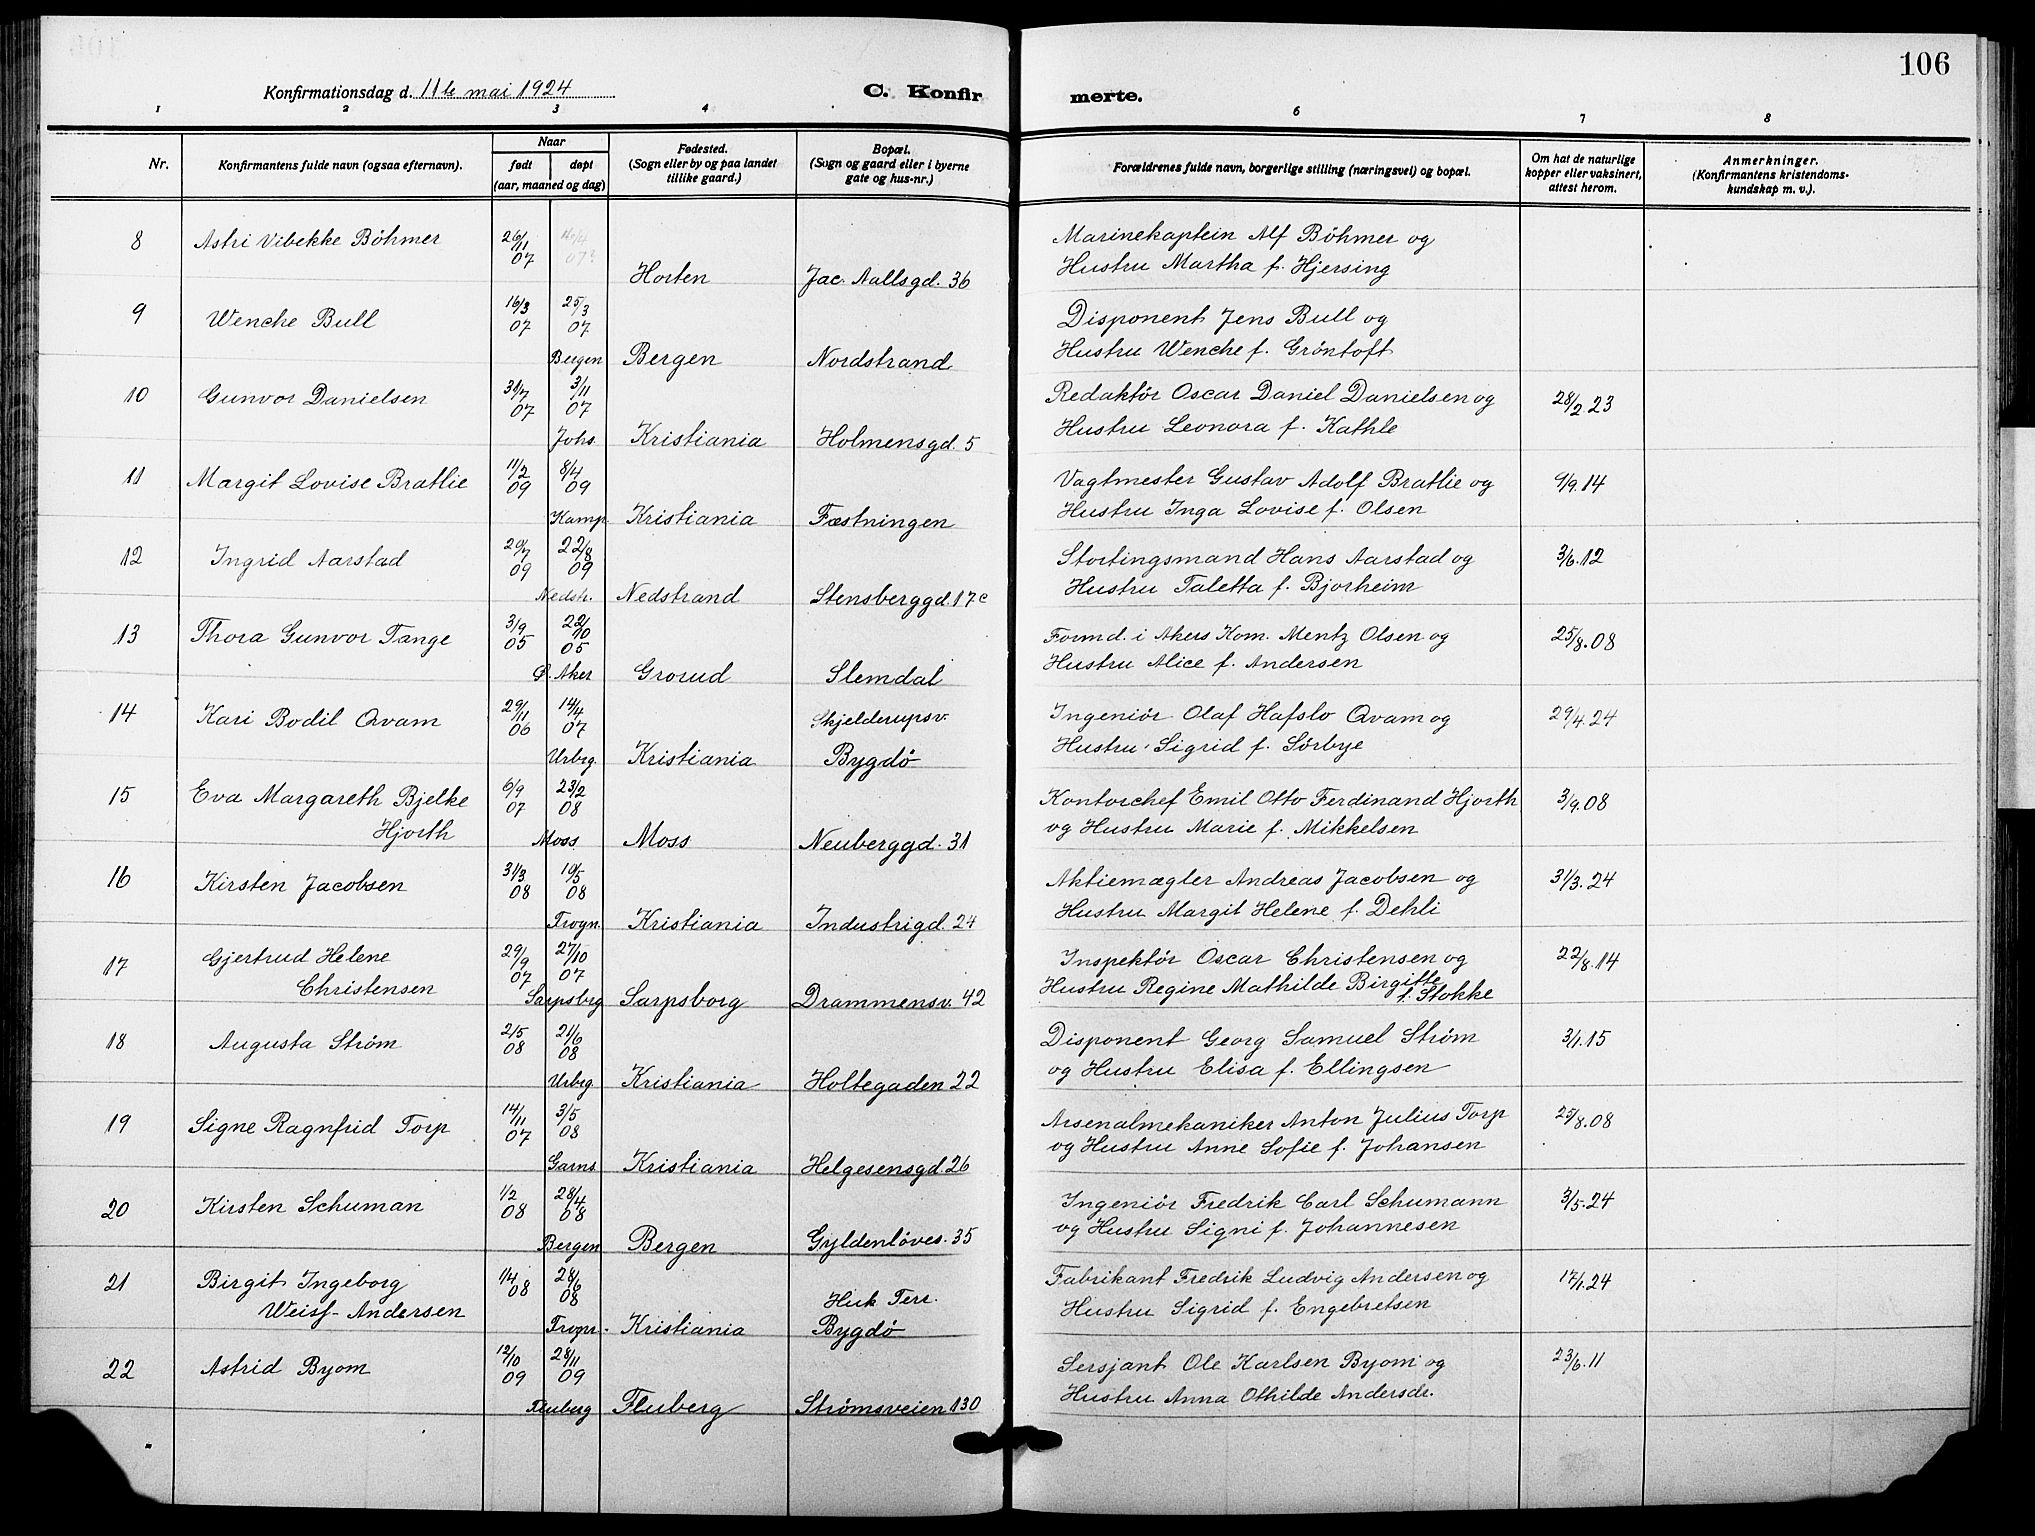 106
Konfirmationsdag d. 11te mai 1924
C. Konfir merte.
1 2 3 4 5 6 7 8
Nr. Konfirmantens fulde navn (ogsaa efternavn). Naar født døpt (aar, maaned og dag) Fødested. (Sogn eller by og paa landet tillike gaard.) Bopæl. (Sogn og gaard eller i byerne gate og hus-nr.) Forældrenes fulde navn, borgerlige stilling (næringsvei) og bopæl. Om hat de naturlige kopper eller vaksinert, attest herom. Anmerkninger. (Konfirmantens kristendoms-kundskap m. v.).
8 Astri Vibekke Böhmer 26/11 07 Marinekaptein Alf Böhmer og
Horten Jac. Aallsgd. 36 Hustru Martha f. Hjersing
9 Wenche Bull 16/3 07 25/3 07 Disponent Jens Bull og
Bergen Bergen Nordstrand Hustru Wenche f. Gröntoft
10 Gunvor Danielsen 31/7 07 3/11 07 Redaktör Oscar Daniel Danielsen og 28/2.23
Johs. Kristiania Holmensgd. 5 Hustru Leonora f. Kathle
11 Margit Lovise Bratlie 11/2 09 8/4 09 Vagtmester Gustav Adolf Bratlie og 9/9.14
Kamp. Kristiania Fæstningen Hustru Inga Lovise f. Olsen
12 Ingrid Aarstad 20/7 09 22/8 09 Stortingsmand Hans Aarstad og 3/6.12
Nedstr. Nedstrand Stensberggd. 17c Hustru Taletta f. Bjorheim
13 Thora Gunvor Tange 3/9 05 22/10 05 Formd. i Akers Kom. Mentz Olsen og 25/8.08
Ø. Aker Grorud Slemdal Hustru Alice f. Andersen
14 Kari Bodil Qvam 29/11 06 14/4 07 Skjelderupsv. Ingeniör Olaf Hafslo Qvam og 29/4.24
Urbg. Kristiania Bygdö Hustru Sigrid f. Sörbye
15 Eva Margareth Bjelke 6/9 07 23/2 08 Kontorchef Emil Otto Ferdinand Hjorth 3/9.08
Hjorth Moss Moss Neuberggd. 31 og Hustru Marie f. Mikkelsen
16 Kirsten Jacobsen 31/3 08 10/5 08 Aktiemægler Andreas Jacobsen og 31/3.24
Frogn. Kristiania Industrigd. 24 Hustru Margit Helene f. Dehli
17 Gjertrud Helene 29/9 07 27/10 07 Inspektör Oscar Christensen og 22/8.14
Christensen Sarpsbrg Sarpsborg Drammensv. 42 Hustru Regine Mathilde Birgitte
f. Stokke
18 Augusta Strøm 2/5 08 21/6 08 Disponent Georg Samuel Strøm 3/1.15
Urbg. Kristiania Holtegaden 22 og Hustru Elisa f. Ellingsen
19 Signe Ragnfrid Torp 14/11 07 3/5 08 Arsenalmekaniker Anton Julius Torp 25/8.08
Garns. Kristiania Helgesensgd. 26 og Hustru Anne Sofie f. Johansen
20 Kirsten Schuman 1/2 08 28/4 08 Ingeniör Fredrik Carl Schumann 3/5.24
Bergen Bergen Gyldenlöves. 35 og Hustru Signi f. Johannesen
21 Birgit Ingeborg 1/4 08 28/6 08 Huk Terr. Fabrikant Fredrik Ludvig Andersen og 17/1.24
Weisf-Andersen Frogn. Kristiania Bygdö Hustru Sigrid f. Engebretsen
22 Astrid Byom 12/10 09 28/11 09 Sersjant Ole Karlsen Byom og 23/6.11
Fluberg Fluberg Strömsveien 130 Hustru Anna Othilde Andersdr.